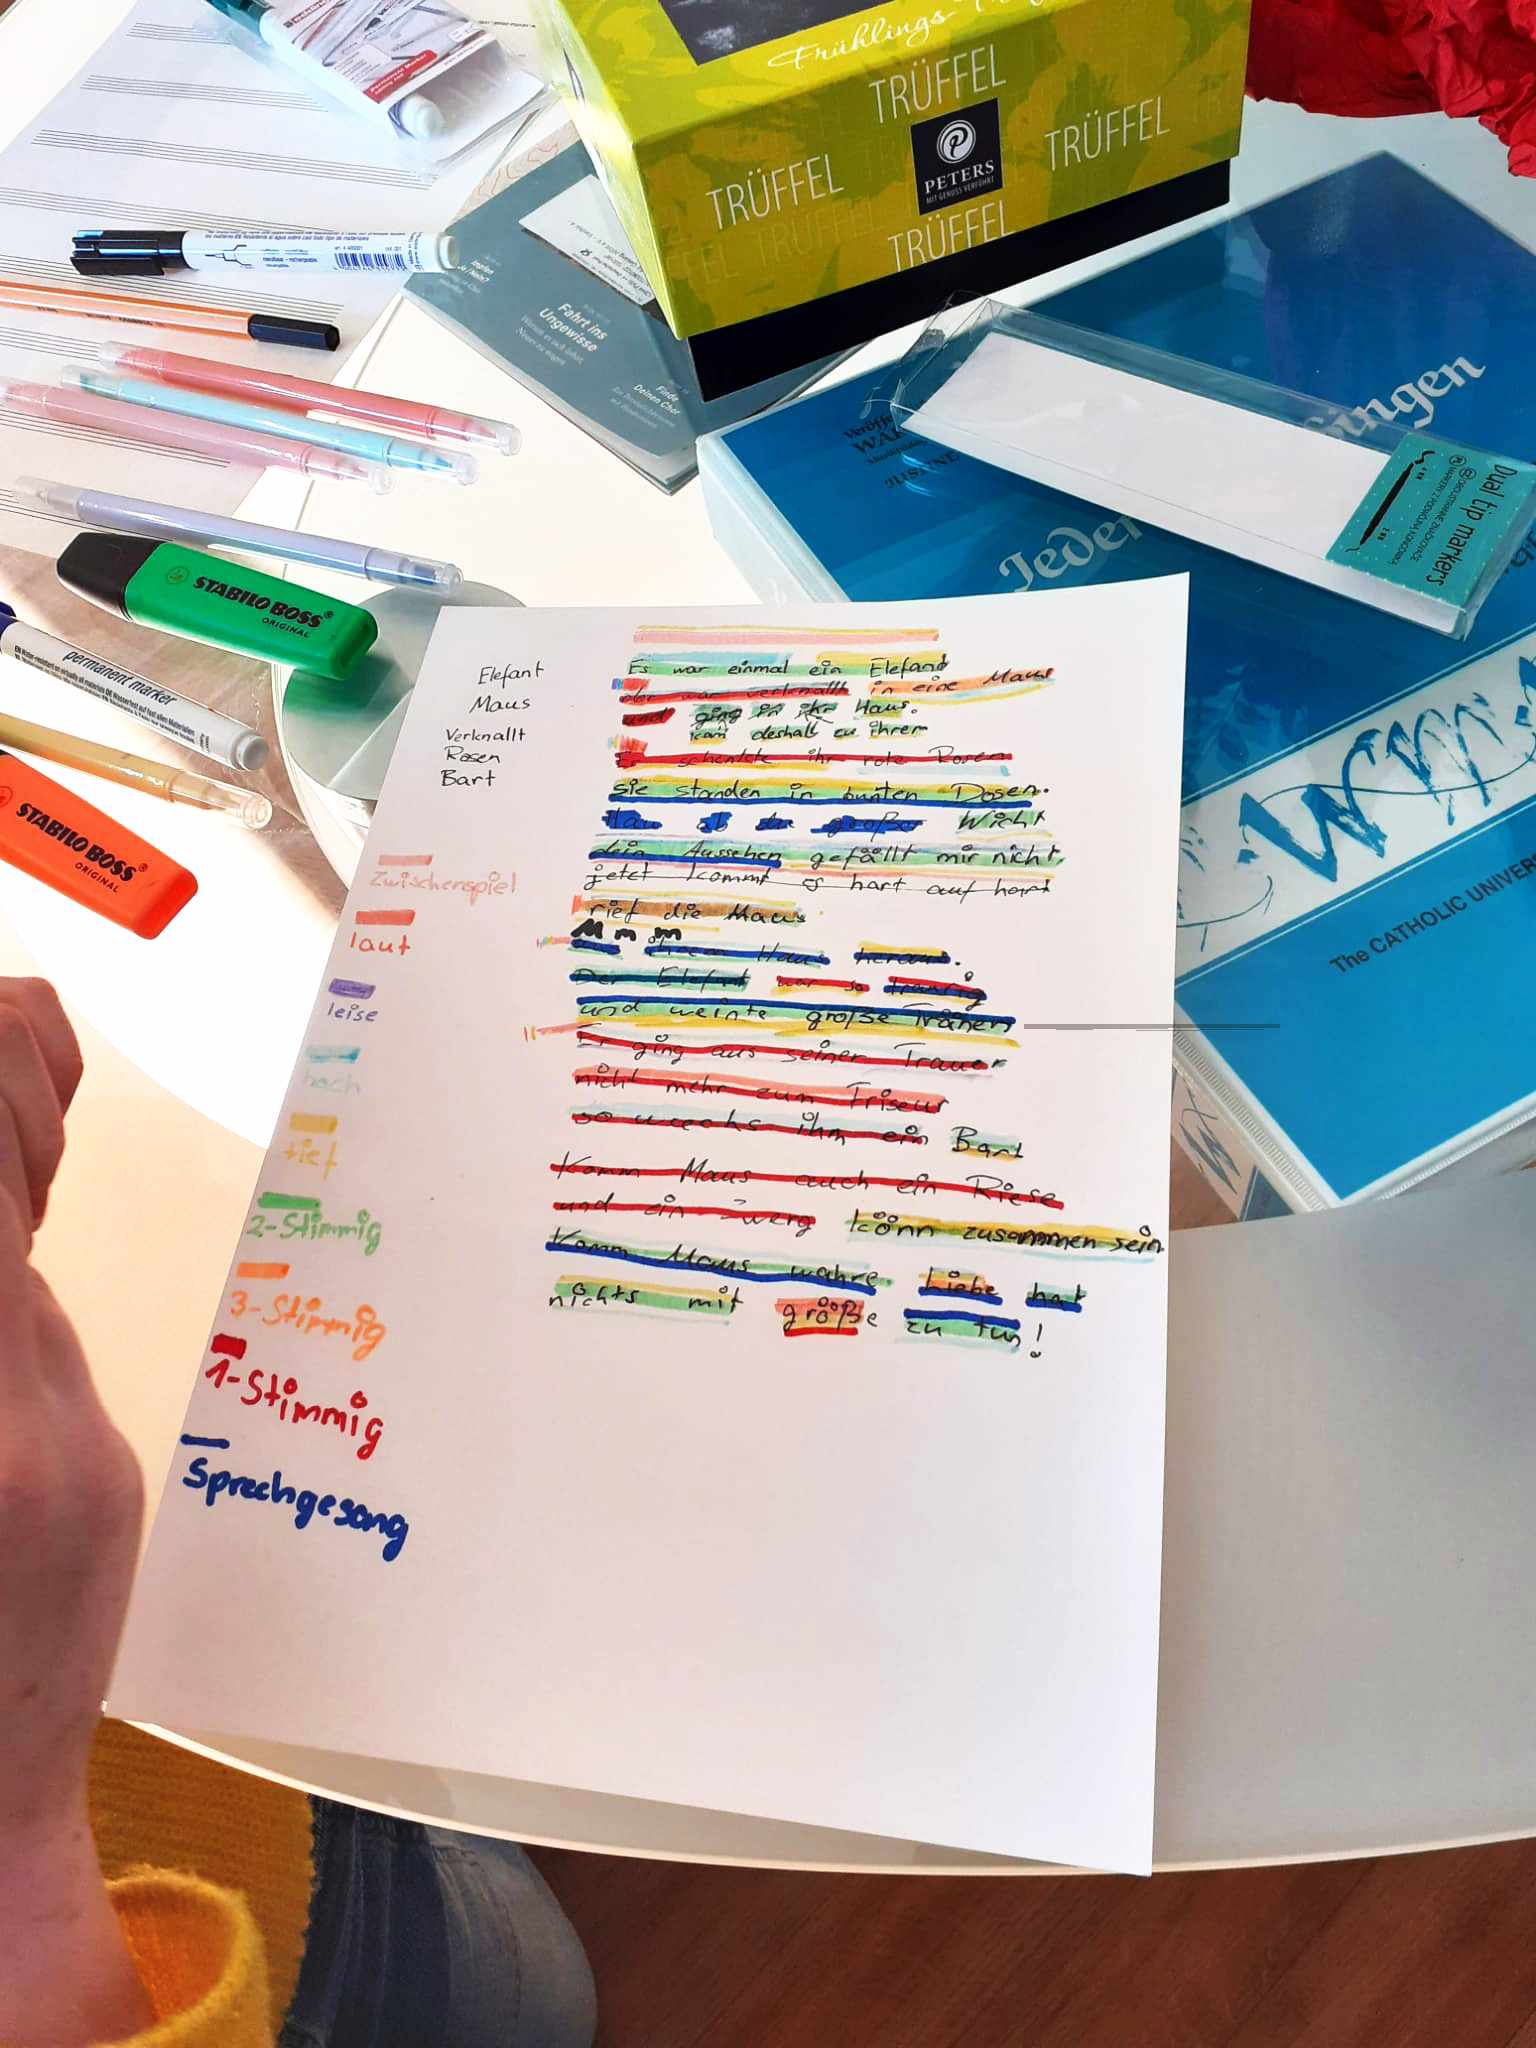 Frühlings-
TRÜFFEL
TRÜFFEL
TRÜFFEL
TRÜFFEL
PETERS
MIT GENUSS VERFÜHRT
Fahrt ins
Ungewisse
Finde
Deinen Chor
Jeder
Singen
Dual tip markers
The CATHOLIC UNIVER
STABILO BOSS
ORIGINAL
permanent marker
STABILO BOSS
ORIGINAL
Elefant
Maus
Verknallt
Rosen
Bart
Zwischenspiel
laut
leise
hoch
tief
2-Stimmig
3-Stimmig
1-Stimmig
Sprechgesang
Es war einmal ein Elefant
der war verknallt in eine Maus
und ging in ihr Haus.
kam deshalb zu ihrem
Er schenkte ihr rote Rosen
sie standen in bunten Dosen.
Hau ab du großer Wicht
dein Aussehen gefällt mir nicht,
jetzt kommt es hart auf hart
rief die Maus
Mmm
aus ihrem Haus heraus.
Der Elefant war so traurig
und weinte große Tränen
Er ging aus seiner Trauer
nicht mehr zum Friseur
so wuchs ihm ein Bart
Komm Maus auch ein Riese
und ein Zwerg könn zusammen sein
Komm Maus wahre Liebe hat
nichts mit größe zu tun!